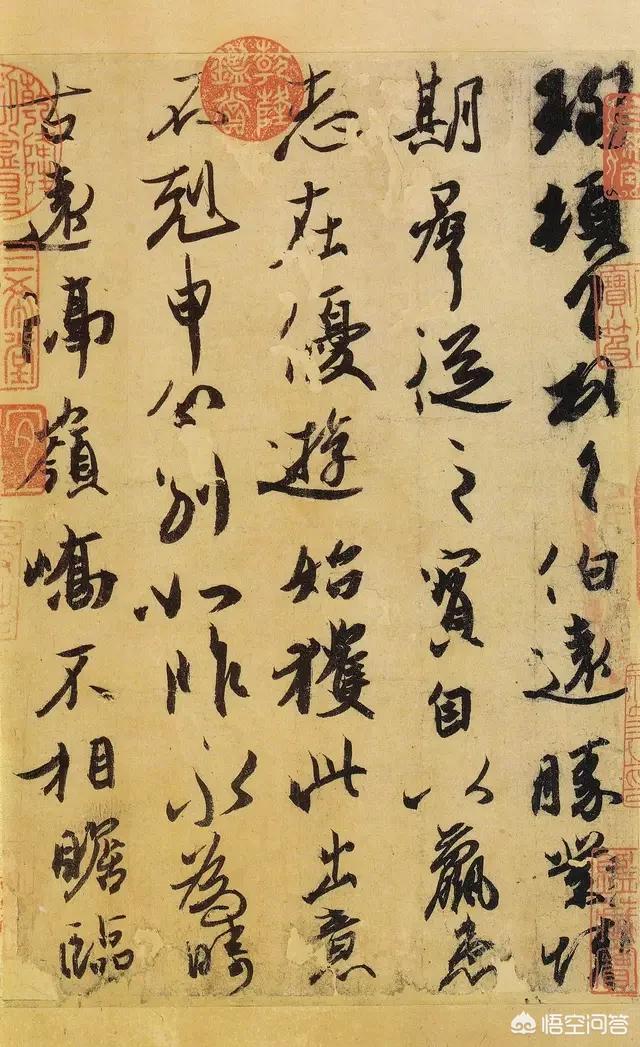 珣頓首頓首伯遠勝業情
期群從之寶自以羸患
志在優遊始獲此出意
不剋申分別如昨永為疇
古遠隔嶺嶠不相瞻臨
乾隆鑑賞
三希堂
悟空问答